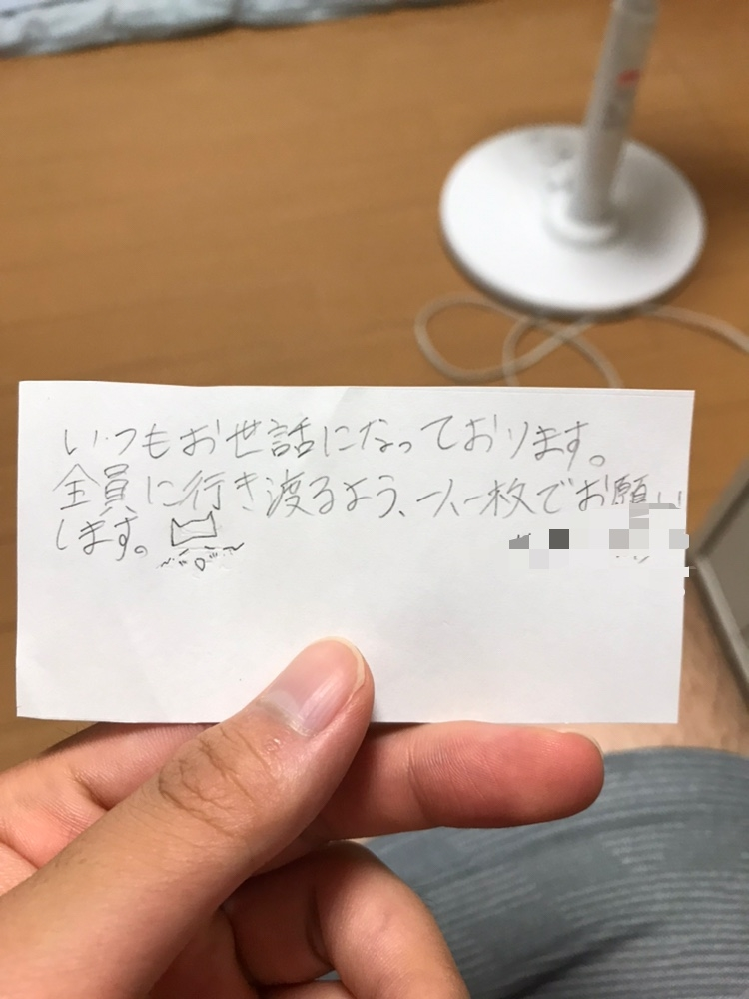 いつもお世話になっております。
全員に行き渡るよう、一人一枚でお願い
します。